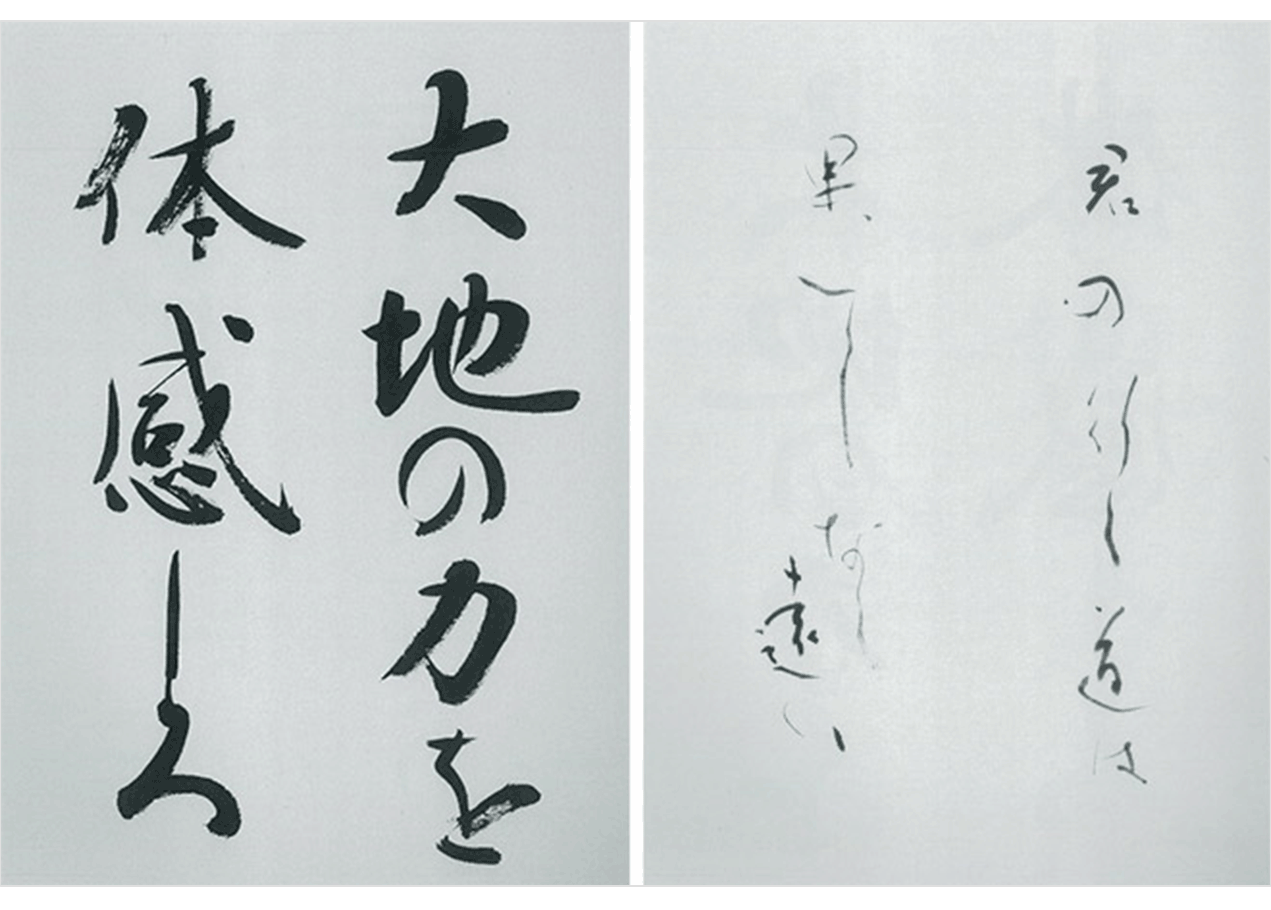 君の行く道は
果てしなく遠い
大地の力を
体感しろ